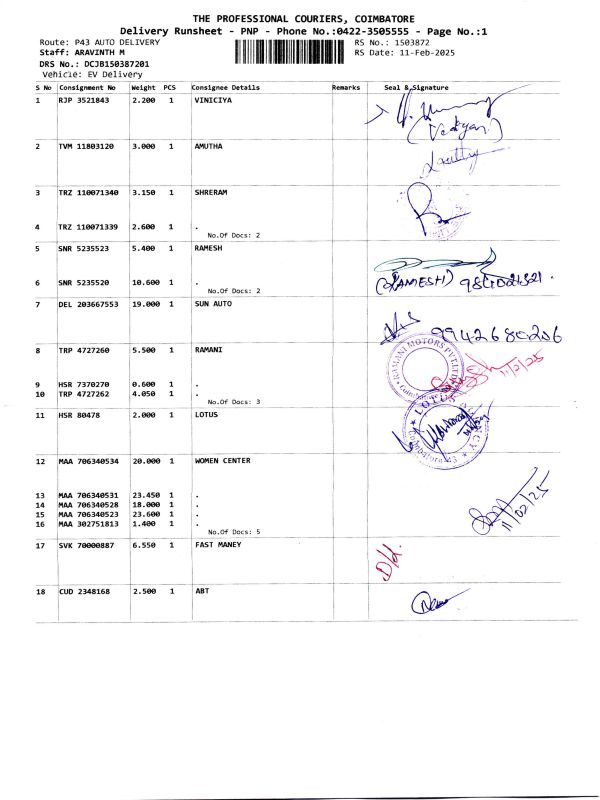 THE PROFESSIONAL COURIERS, COIMBATORE
Delivery Runsheet - PNP - Phone No.:0422-3505555 - Page No.:1
Route: P43 AUTO DELIVERY RS No.: 1503872
Staff: ARAVINTH M RS Date: 11-Feb-2025
DRS No.: DCJB150387201
Vehicle: EV Delivery
S No Consignment No Weight PCS Consignee Details Remarks Seal & Signature
1 RJP 3521843 2.200 1 VINICIYA
2 TVM 11803120 3.000 1 AMUTHA
3 TRZ 110071340 3.150 1 SHRERAM
4 TRZ 110071339 2.600 1 .
No.Of Docs: 2
5 SNR 5235523 5.400 1 RAMESH
6 SNR 5235520 10.600 1 .
No.Of Docs: 2
(RAMESH)
7 DEL 203667553 19.000 1 SUN AUTO
9942680206
8 TRP 4727260 5.500 1 RAMANI
RAMANI MOTORS PVT.LTD
11/2/25
9 HSR 7370270 0.600 1 .
10 TRP 4727262 4.050 1 .
No.Of Docs: 3
11 HSR 80478 2.000 1 LOTUS
LOTUS
12 MAA 706340534 20.000 1 WOMEN CENTER
13 MAA 706340531 23.450 1 .
14 MAA 706340528 18.000 1 .
15 MAA 706340523 23.600 1 .
16 MAA 302751813 1.400 1 .
No.Of Docs: 5
11/02/25
17 SVK 70000887 6.550 1 FAST MANEY
18 CUD 2348168 2.500 1 ABT